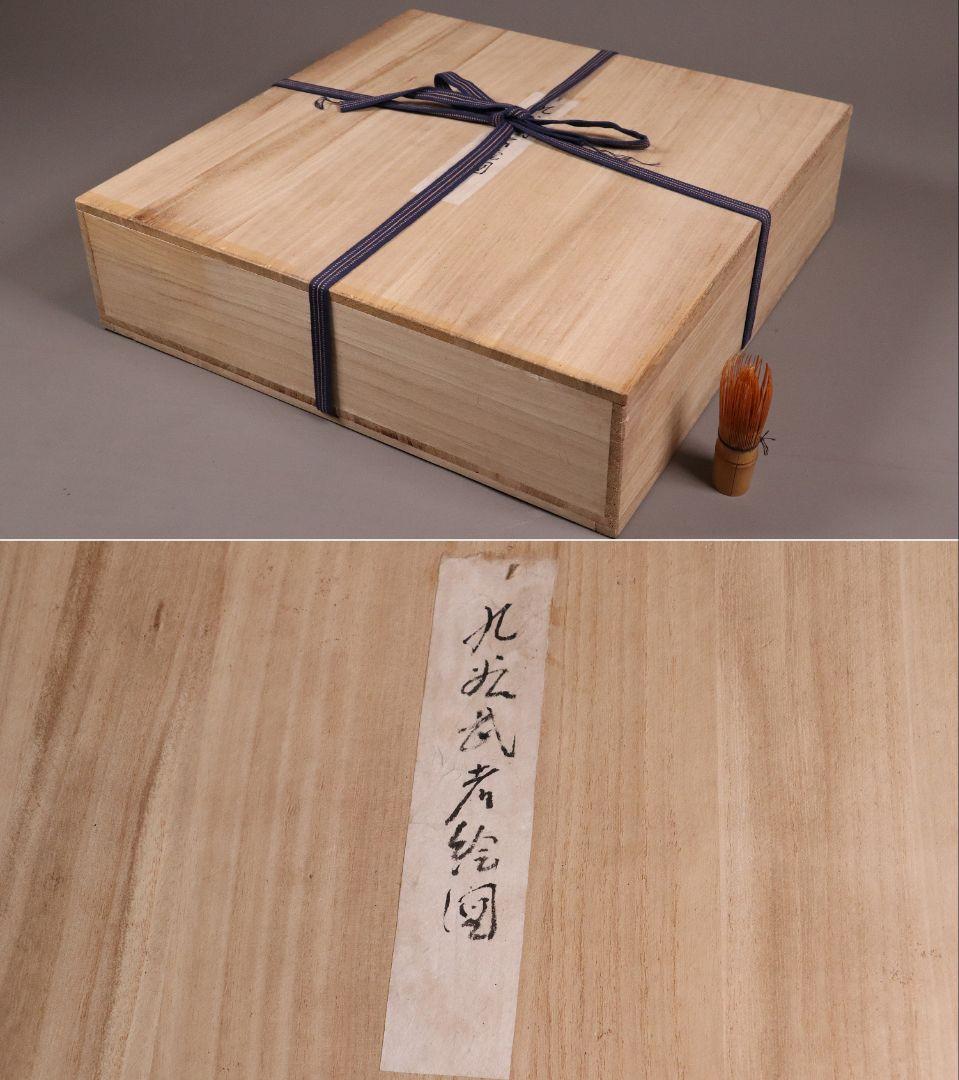 九谷武者絵図